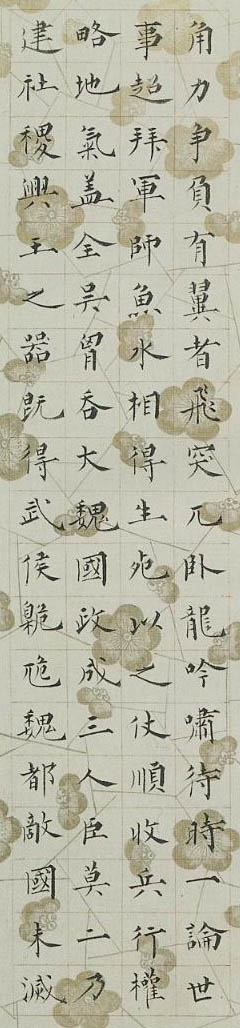 角力争負有翼者飛突兀卧龍吟嘯待時一論世
事超拜軍師魚水相得生死以之仗順收兵行權
略地氣盖全吴胃吞大魏國政成三人臣莫二乃
建社稷興王之器既得武侯㒹卼魏都敵國未滅